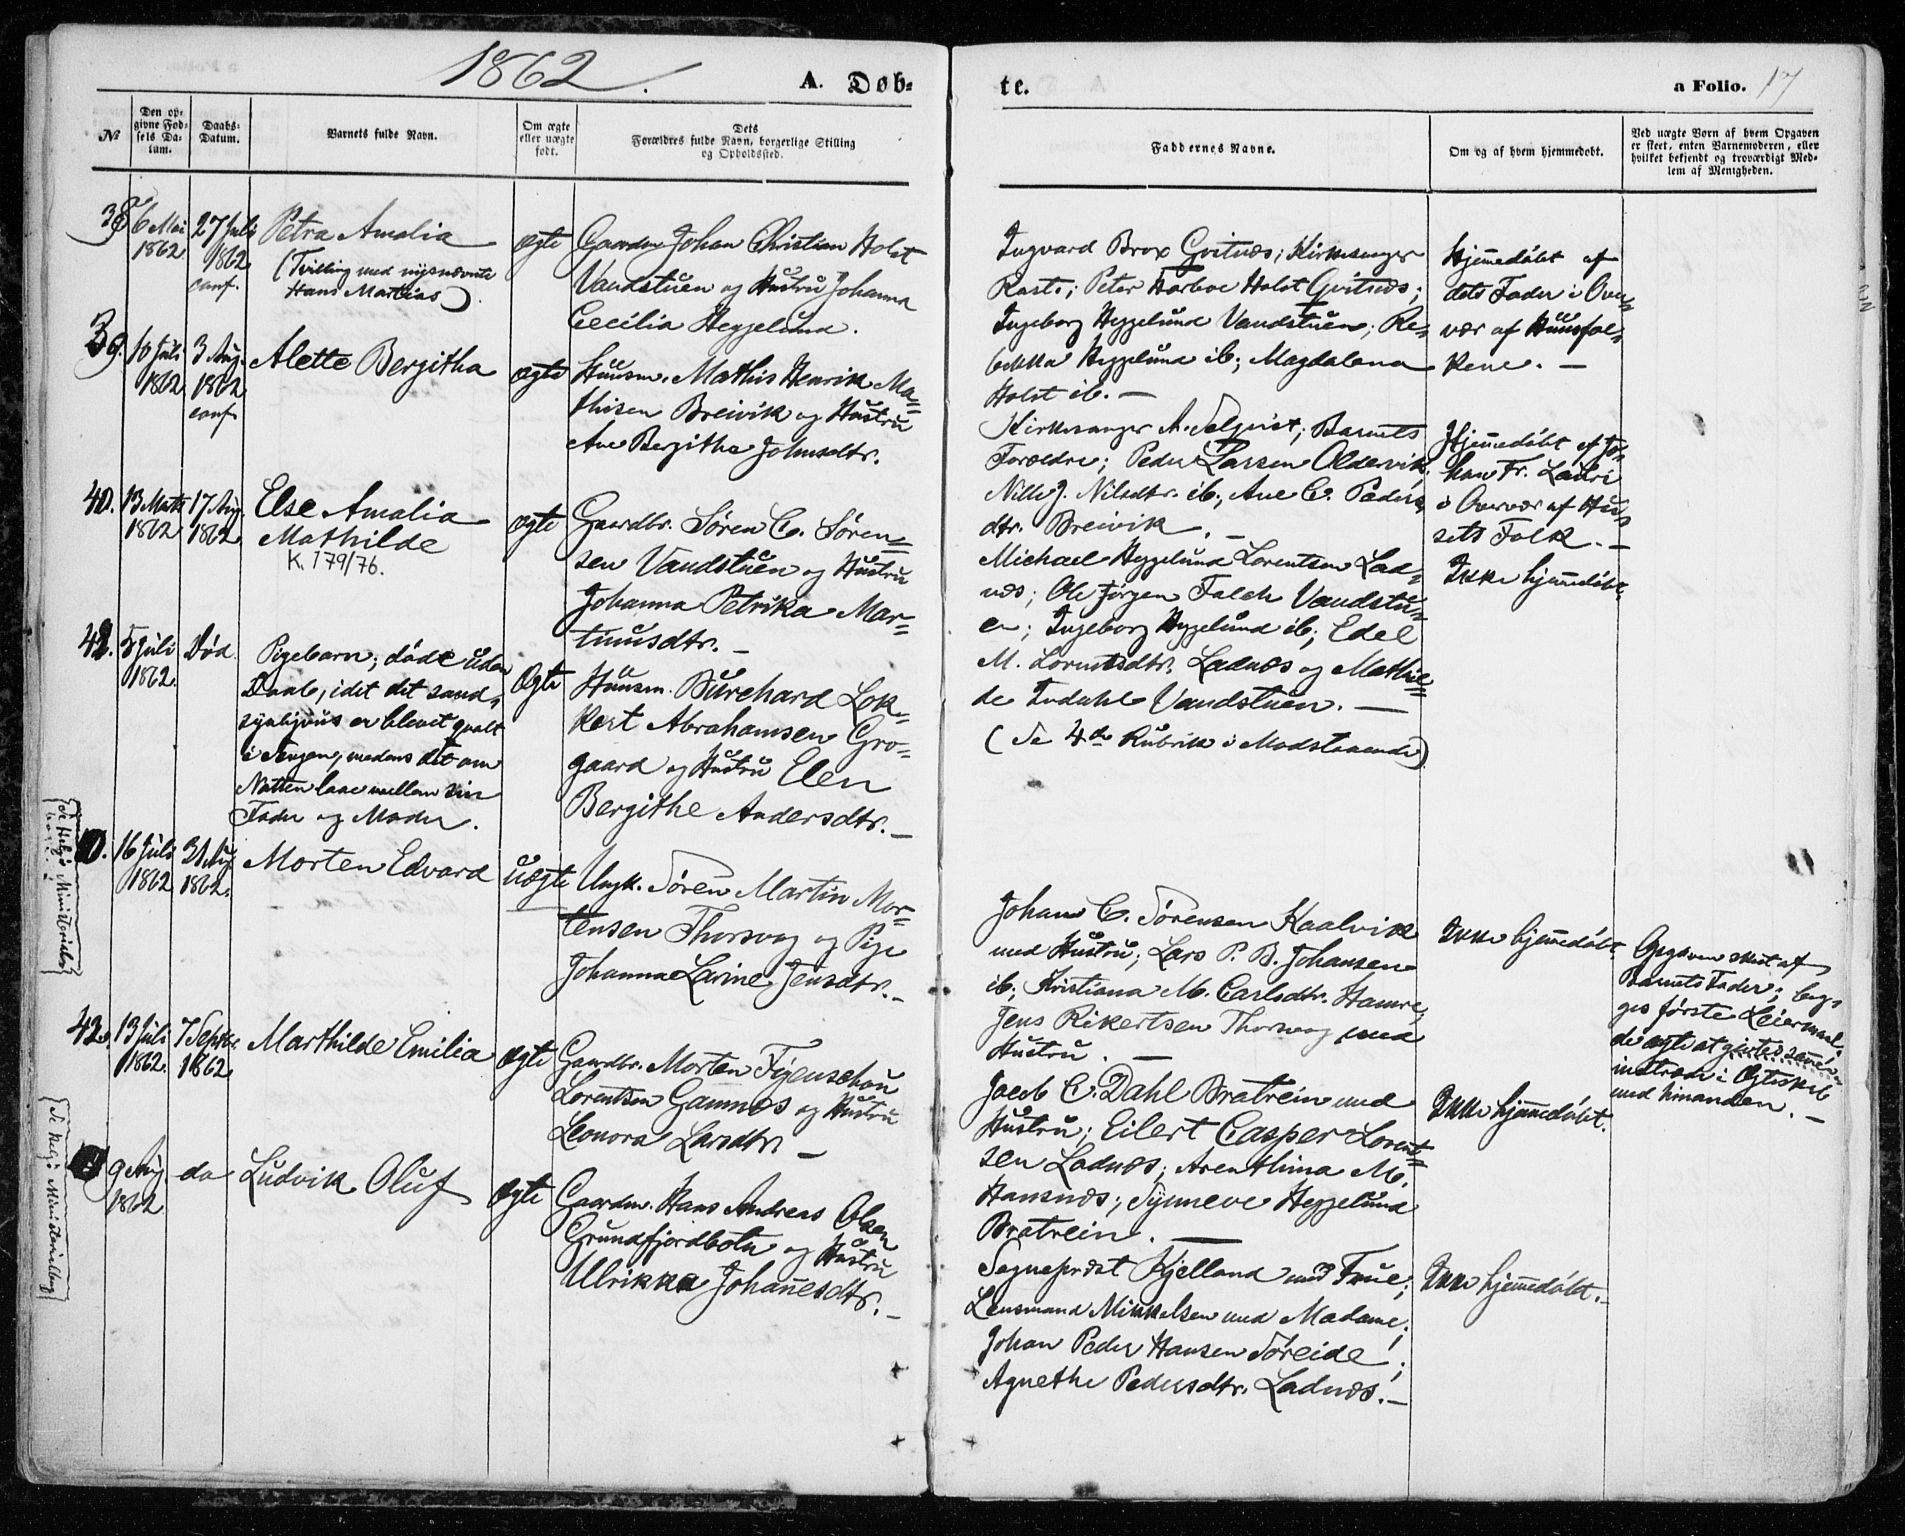 1862.
A. Døb-
te.
a Folio. 17
№
Den op-
givne Fød-
sels Da-
tum.
Daabs-
Datum.
Barnets fulde Navn.
Om ægte
eller uægte
født.
Dets
Forældres fulde Navn, borgerlige Stilling
og Opholdssted.
Faddernes Navne.
Om og af hvem hjemmedøbt.
Ved uægte Børn af hvem Opgaven
er skeet, enten Barnemoderen, eller
hvilket bekjendt og troværdigt Med-
lem af Menigheden.
38
6 Mai
1862
27 Juli
1862
conf.
Petra Amalia
(Tvilling med nysnævnte
Hans Mathias)
ægte
Gaardm. Johan Christian Holst
Vandstuen og Hustru Johanna
Cecilia Heggelund.
Ingvard Brox Gvitnæs; Kirkesanger
Rasti; Peter Harboe Holst Gvitnæs;
Ingeborg Heggelund Vandstuen; Re-
bekka Heggelund ib; Magdalena
Holst ib. —
Hjemmedøbt af
dets Fader i Over-
vær af Huusfol-
kene. —
39.
10 Juli
1862
3 Aug.
1862
conf.
Alette Bergitha
ægte
Huusm. Mathis Henrik Ma-
thisen Breivik og Hustru
Ane Bergithe Johnsdtr.
Kirkesanger A. Selqvist; Barnets
Forældre; Peder Larsen Oldervik;
Nille J. Nilsdtr. ib; Ane C. Peders-
dtr. Breivik. —
Hjemmedøbt af Jo-
han Fr. Lauri
i Overvær af Hu-
sets Folk. —
40.
13 Marts
1862
17 Aug.
1862
Else Amalia
Mathilde
K. 179/76.
ægte
Gaardbr. Søren C. Søren-
sen Vandstuen og Hustru
Johanna Petrika Mar-
tinusdtr. —
Michael Heggelund Lorentsen Lad-
næs; Ole Jørgen Falch Vandstu-
en; Ingeborg Heggelund ib; Edel
M. Lorentsdtr. Ladnæs og Mathil-
de Indahl Vandstuen. —
Ikke hjemmedøbt.
5 Juli
1862.
Død.
Pigebarn; døde uden
Daab, idet det sand-
synligviis er blevet qvalt
i Sengen, medens det om
Natten laae mellem sin
Fader og Moder.
Ægte
Huusm. Burchard Lok-
kert Abrahamsen Gro-
gaard og Hustru Elen
Bergithe Andersdtr. —
(Se 4de Rubrik i Modstaaende)
16 Juli
1862
31 Aug.
1862.
Morten Edvard
uægte
Ungk. Søren Martin Mor-
tensen Thorsvag og Pige
Johanna Lavine Jensdtr. —
Johan C. Sørensen Kaalvik
med Hustru; Lars P. B. Johansen
ib; Kristiana M. Carlsdtr. Hamre;
Jens Rikertsen Thorsvag med
Hustru. —
Ikke hjemmedøbt.
Opgaven skeet af
Barnets Fader; beg-
ges første Leiermaal.
med hinanden. —
Se Helgø Ministerialbog
42.
13 Juli
1862.
7 Septbr.
1862
Marthilde Emilia
ægte
Gaardbr. Morten Figenschou
Lorentsen Gamnæs og Hustru
Leonora Larsdtr. —
Jacob C. Dahl Bratrein med
Hustru; Eilert Casper Lorent-
sen Ladnæs; Arenthina M.
Hansnæs; Synneve Heggelund
Bratrein. —
Ikke hjemmedøbt.
9 Aug.
1862
do
Ludvik Oluf
ægte
Gaardm. Hans Andreas Olsen
Grundfjordbotn og Hustru
Ulrikka Johannesdtr. —
Sognepræst Kjelland med Frue;
Lensmand Mikkelsen med Madame;
Johan Peder Hansen Søreide;
Agnethe Pedersdtr. Ladnæs. —
Ikke hjemmedøbt. —
Se Helgø Ministerialbog